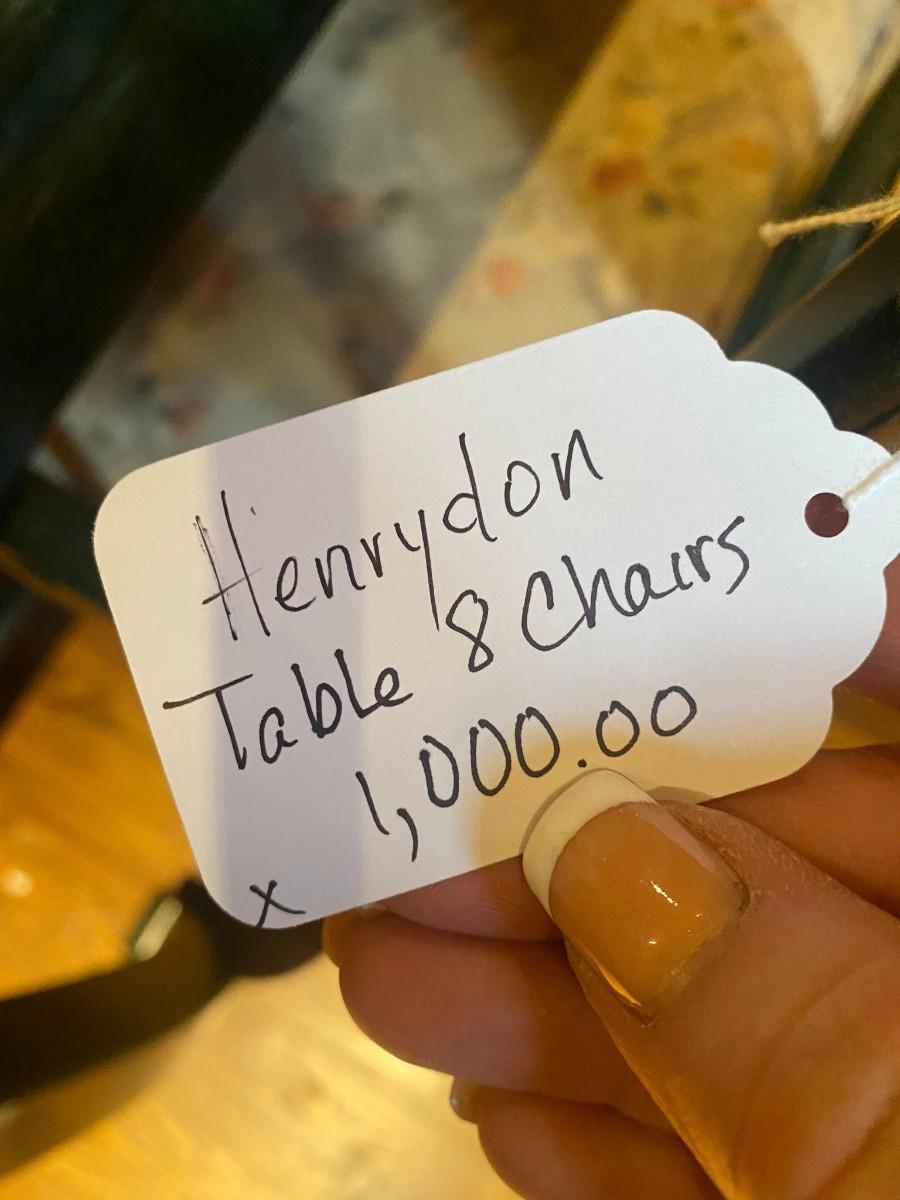 Henrydon
Table 8 Chairs
1,000.00
x